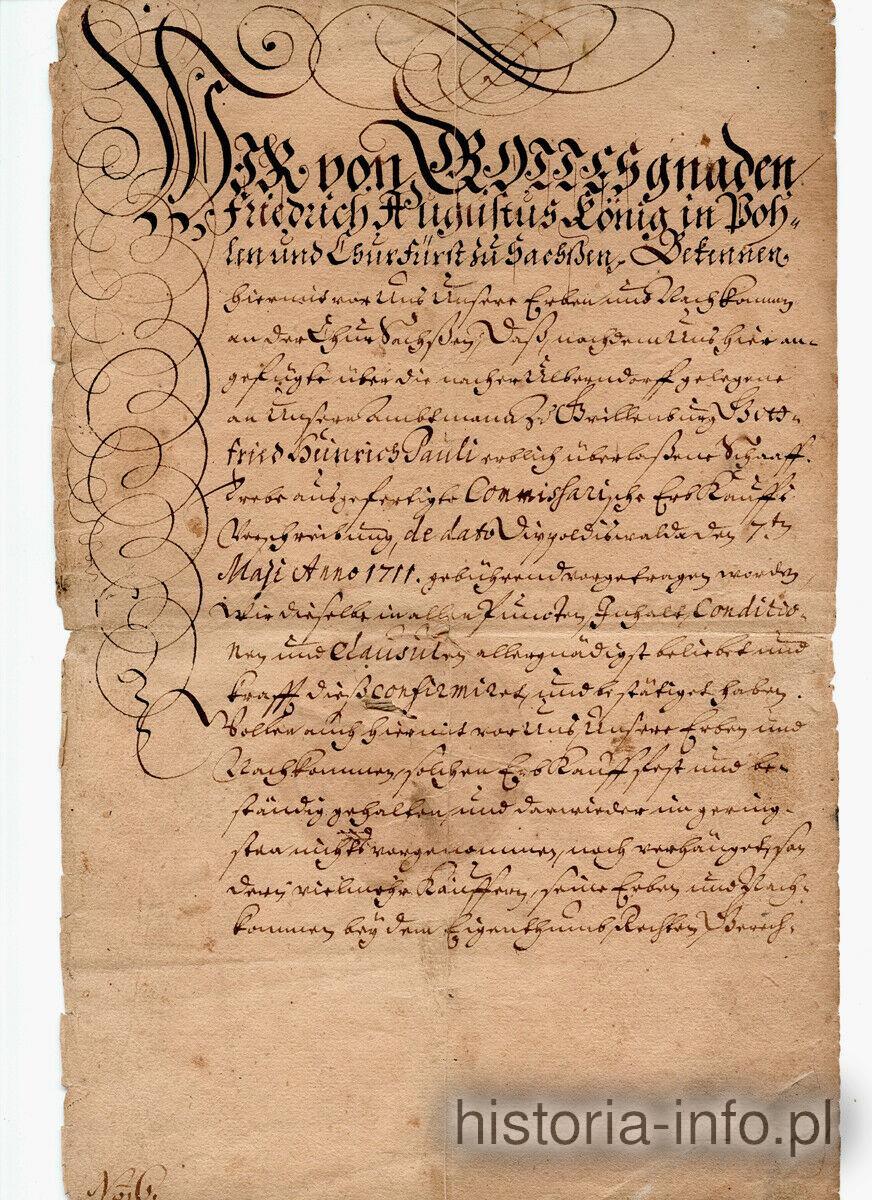 WIR von GOTTES gnaden
Friedrich Augustus König in Poh-
len und ChurFürst zu Sachßen, Bekennen
hiermit vor Uns Unsere Erben und Nachkommen
an der Chur Sachßen, Daß, nachdem Uns hier an-
gefügte über die nacher Ulberndorff gelegene
an Unsern Ambtmann zu Grillenburg Gott-
fried Heinrich Pauli erblich überlaßene Schaaff-
Trebe ausgefertigte Commissarische ErbKauffs
Verschreibung, de dato Dippoldiswalda den 7ten
Maji Anno 1711. gebührend vorgetragen worden,
Wir dieselbe in allen Puncten, Inhalt, Conditio-
nen und Clausuln allergnädigst beliebet und
krafft dieß confirmiret, und bestätiget haben.
Wollen auch hiermit vor Uns Unsere Erben und
Nachkommen, solchen ErbKauff fest und be-
ständig gehalten, und darwieder im gering-
sten nichts vorgenommen, noch verhänget, son
dern vielmehr Käuffern, seine Erben und Nach-
kommen bey dem Eigenthumb, Rechten, Gerech-
historia-info.pl